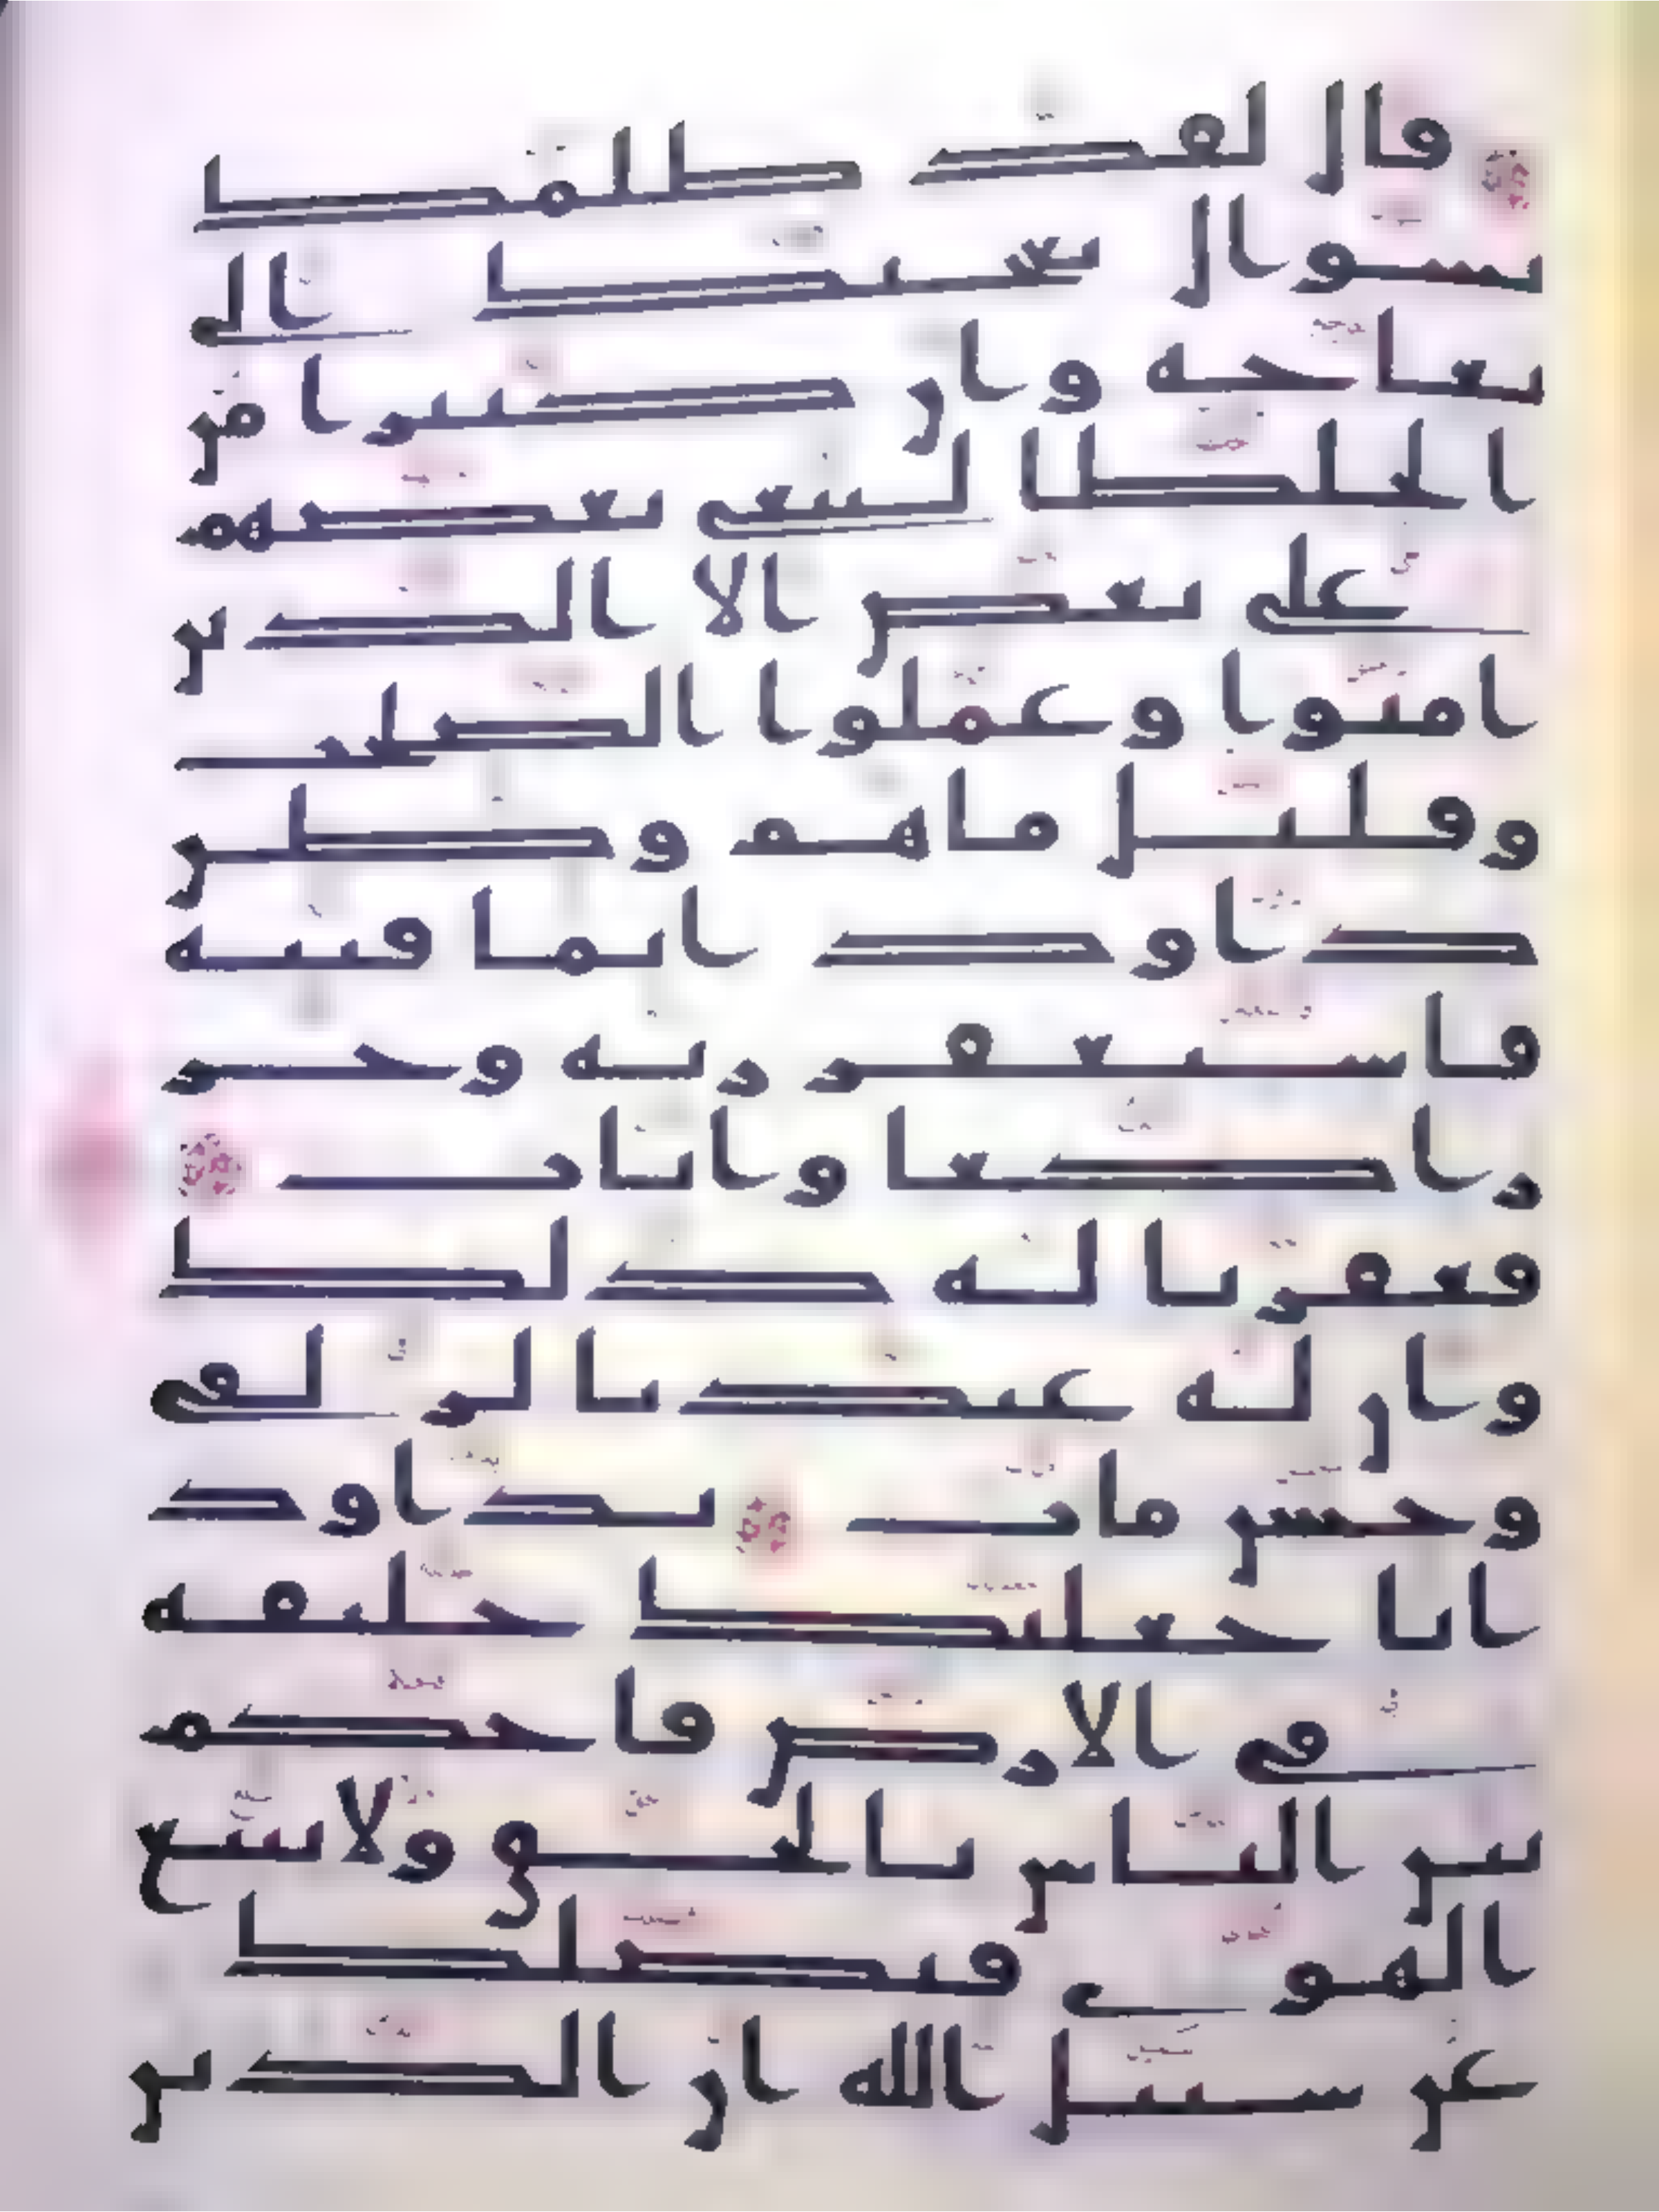 قال لقد ظلمك
بسوال نعجتك الى
نعاجه وان كثيرا من
الخلطا ليبغى بعضهم
على بعض الا الذين
امنوا وعملوا الصلحت
وقليل ما هم وظن
داود انما فتنه
فاستغفر ربه وخر
راكعا واناب
فغفرنا له ذلك
وان له عندنا لزلفى
وحسن ماب يداود
انا جعلنك خليفه
فى الارض فاحكم
بين الناس بالحق ولا تتبع
الهوى فيضلك
عن سبيل الله ان الذين